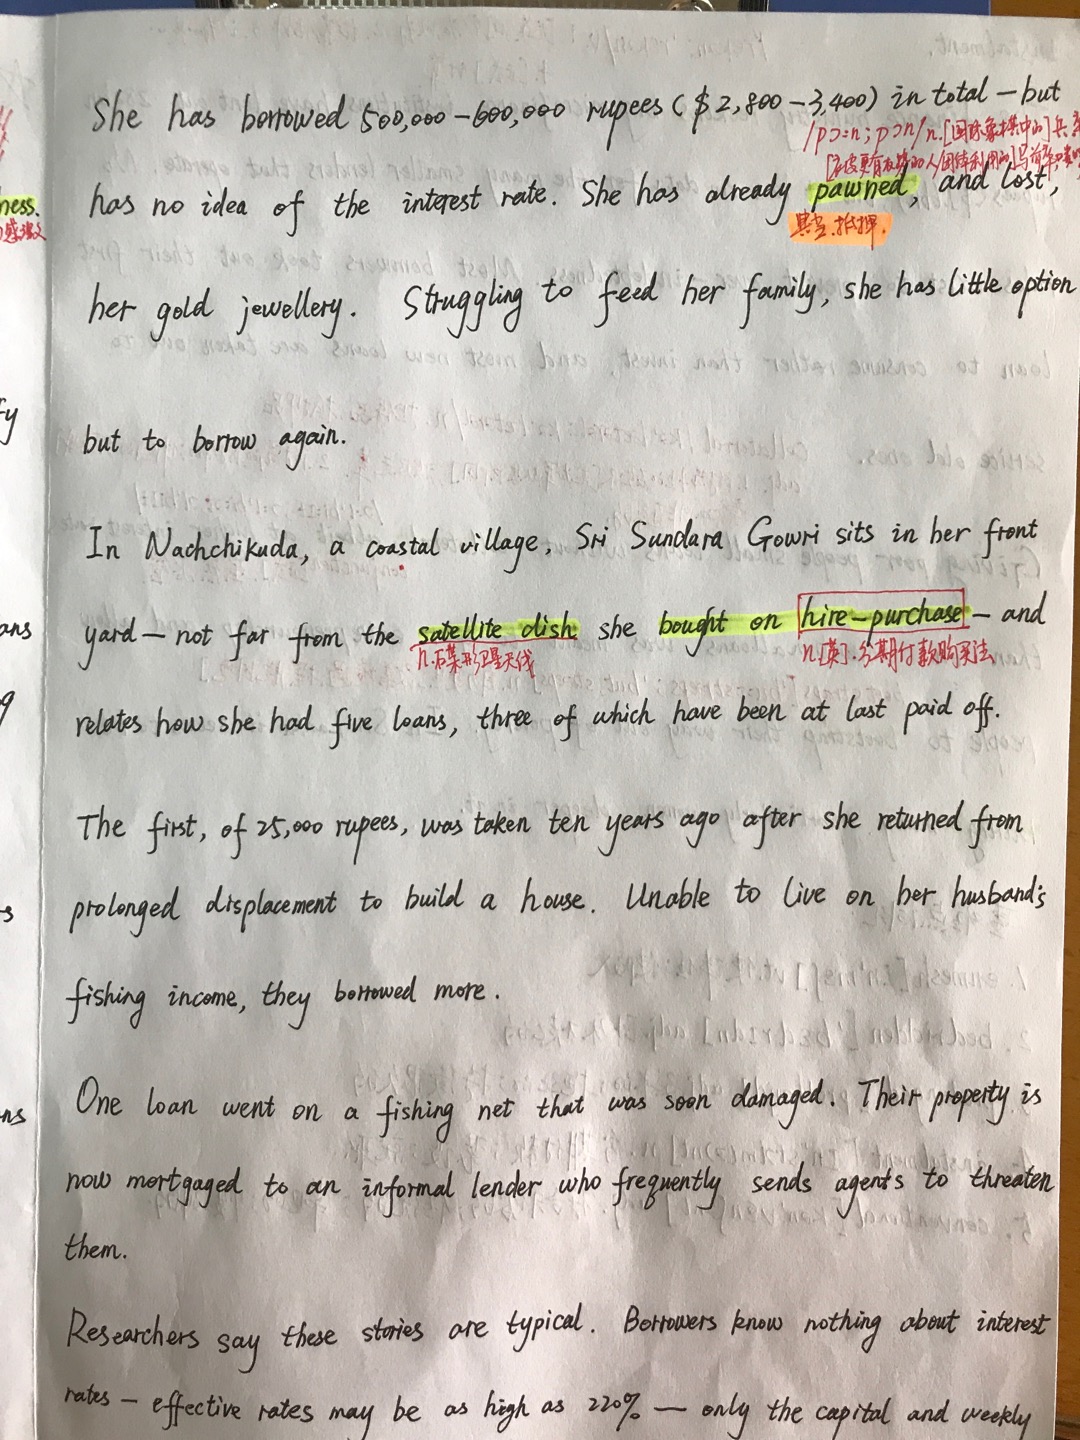 She has borrowed 500,000-600,000 rupees ($2,800-3,400) in total - but
/pɔ:n; pɔn/n.[国际象棋中的]兵
has no idea of the interest rate. She has already pawned, and lost,
ness.
典当.抵押.
her gold jewellery. Struggling to feed her family, she has little option
but to borrow again.
In Nachchikuda, a coastal village, Sri Sundara Gowri sits in her front
yard - not far from the satellite dish she bought on hire-purchase - and
n.碟形卫星天线
n.[英].分期付款购买法
relates how she had five loans, three of which have been at last paid off.
The first, of 25,000 rupees, was taken ten years ago after she returned from
prolonged displacement to build a house. Unable to live on her husband's
fishing income, they borrowed more.
One loan went on a fishing net that was soon damaged. Their property is
now mortgaged to an informal lender who frequently sends agents to threaten
them.
Researchers say these stories are typical. Borrowers know nothing about interest
rates - effective rates may be as high as 220% - only the capital and weekly